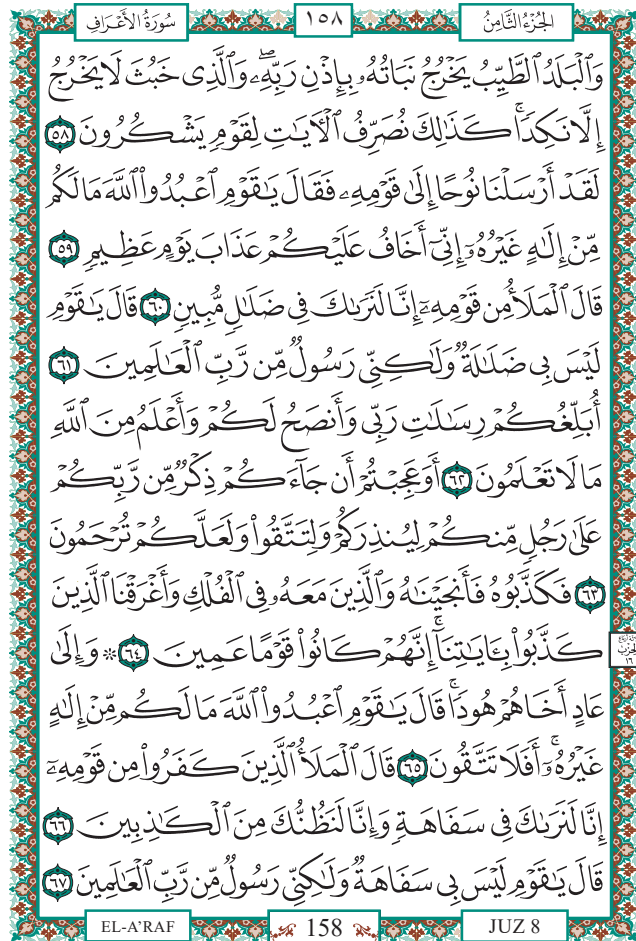 سُورَةُ الأَعْرَافِ
١٥٨
الجُزْءُ الثَّامِنُ
وَٱلْبَلَدُ ٱلطَّيِّبُ يَخْرُجُ نَبَاتُهُۥ بِإِذْنِ رَبِّهِۦۖ وَٱلَّذِى خَبُثَ لَا يَخْرُجُ
إِلَّا نَكِدٗاۚ كَذَٰلِكَ نُصَرِّفُ ٱلْأٓيَٰتِ لِقَوْمٖ يَشْكُرُونَ ٥٨
لَقَدْ أَرْسَلْنَا نُوحًا إِلَىٰ قَوْمِهِۦ فَقَالَ يَٰقَوْمِ ٱعْبُدُواْ ٱللَّهَ مَا لَكُم
مِّنْ إِلَٰهٍ غَيْرُهُۥٓ إِنِّىٓ أَخَافُ عَلَيْكُمْ عَذَابَ يَوْمٍ عَظِيمٖ ٥٩
قَالَ ٱلْمَلَأُ مِن قَوْمِهِۦٓ إِنَّا لَنَرَىٰكَ فِى ضَلَٰلٖ مُّبِينٖ ٦٠ قَالَ يَٰقَوْمِ
لَيْسَ بِى ضَلَٰلَةٞ وَلَٰكِنِّى رَسُولٞ مِّن رَّبِّ ٱلْعَٰلَمِينَ ٦١
أُبَلِّغُكُمْ رِسَٰلَٰتِ رَبِّى وَأَنصَحُ لَكُمْ وَأَعْلَمُ مِنَ ٱللَّهِ
مَا لَا تَعْلَمُونَ ٦٢ أَوَعَجِبْتُمْ أَن جَآءَكُمْ ذِكْرٞ مِّن رَّبِّكُمْ
عَلَىٰ رَجُلٖ مِّنكُمْ لِيُنذِرَكُمْ وَلِتَتَّقُواْ وَلَعَلَّكُمْ تُرْحَمُونَ
٦٣ فَكَذَّبُوهُ فَأَنجَيْنَٰهُ وَٱلَّذِينَ مَعَهُۥ فِى ٱلْفُلْكِ وَأَغْرَقْنَا ٱلَّذِينَ
كَذَّبُواْ بِـَٔايَٰتِنَآۚ إِنَّهُمْ كَانُواْ قَوْمًا عَمِينَ ٦٤ ۞ وَإِلَىٰ
عَادٍ أَخَاهُمْ هُودٗاۚ قَالَ يَٰقَوْمِ ٱعْبُدُواْ ٱللَّهَ مَا لَكُم مِّنْ إِلَٰهٍ
غَيْرُهُۥٓۚ أَفَلَا تَتَّقُونَ ٦٥ قَالَ ٱلْمَلَأُ ٱلَّذِينَ كَفَرُواْ مِن قَوْمِهِۦٓ
إِنَّا لَنَرَىٰكَ فِى سَفَاهَةٖ وَإِنَّا لَنَظُنُّكَ مِنَ ٱلْكَٰذِبِينَ ٦٦
قَالَ يَٰقَوْمِ لَيْسَ بِى سَفَاهَةٞ وَلَٰكِنِّى رَسُولٞ مِّن رَّبِّ ٱلْعَٰلَمِينَ ٦٧
EL-A'RAF
158
JUZ 8